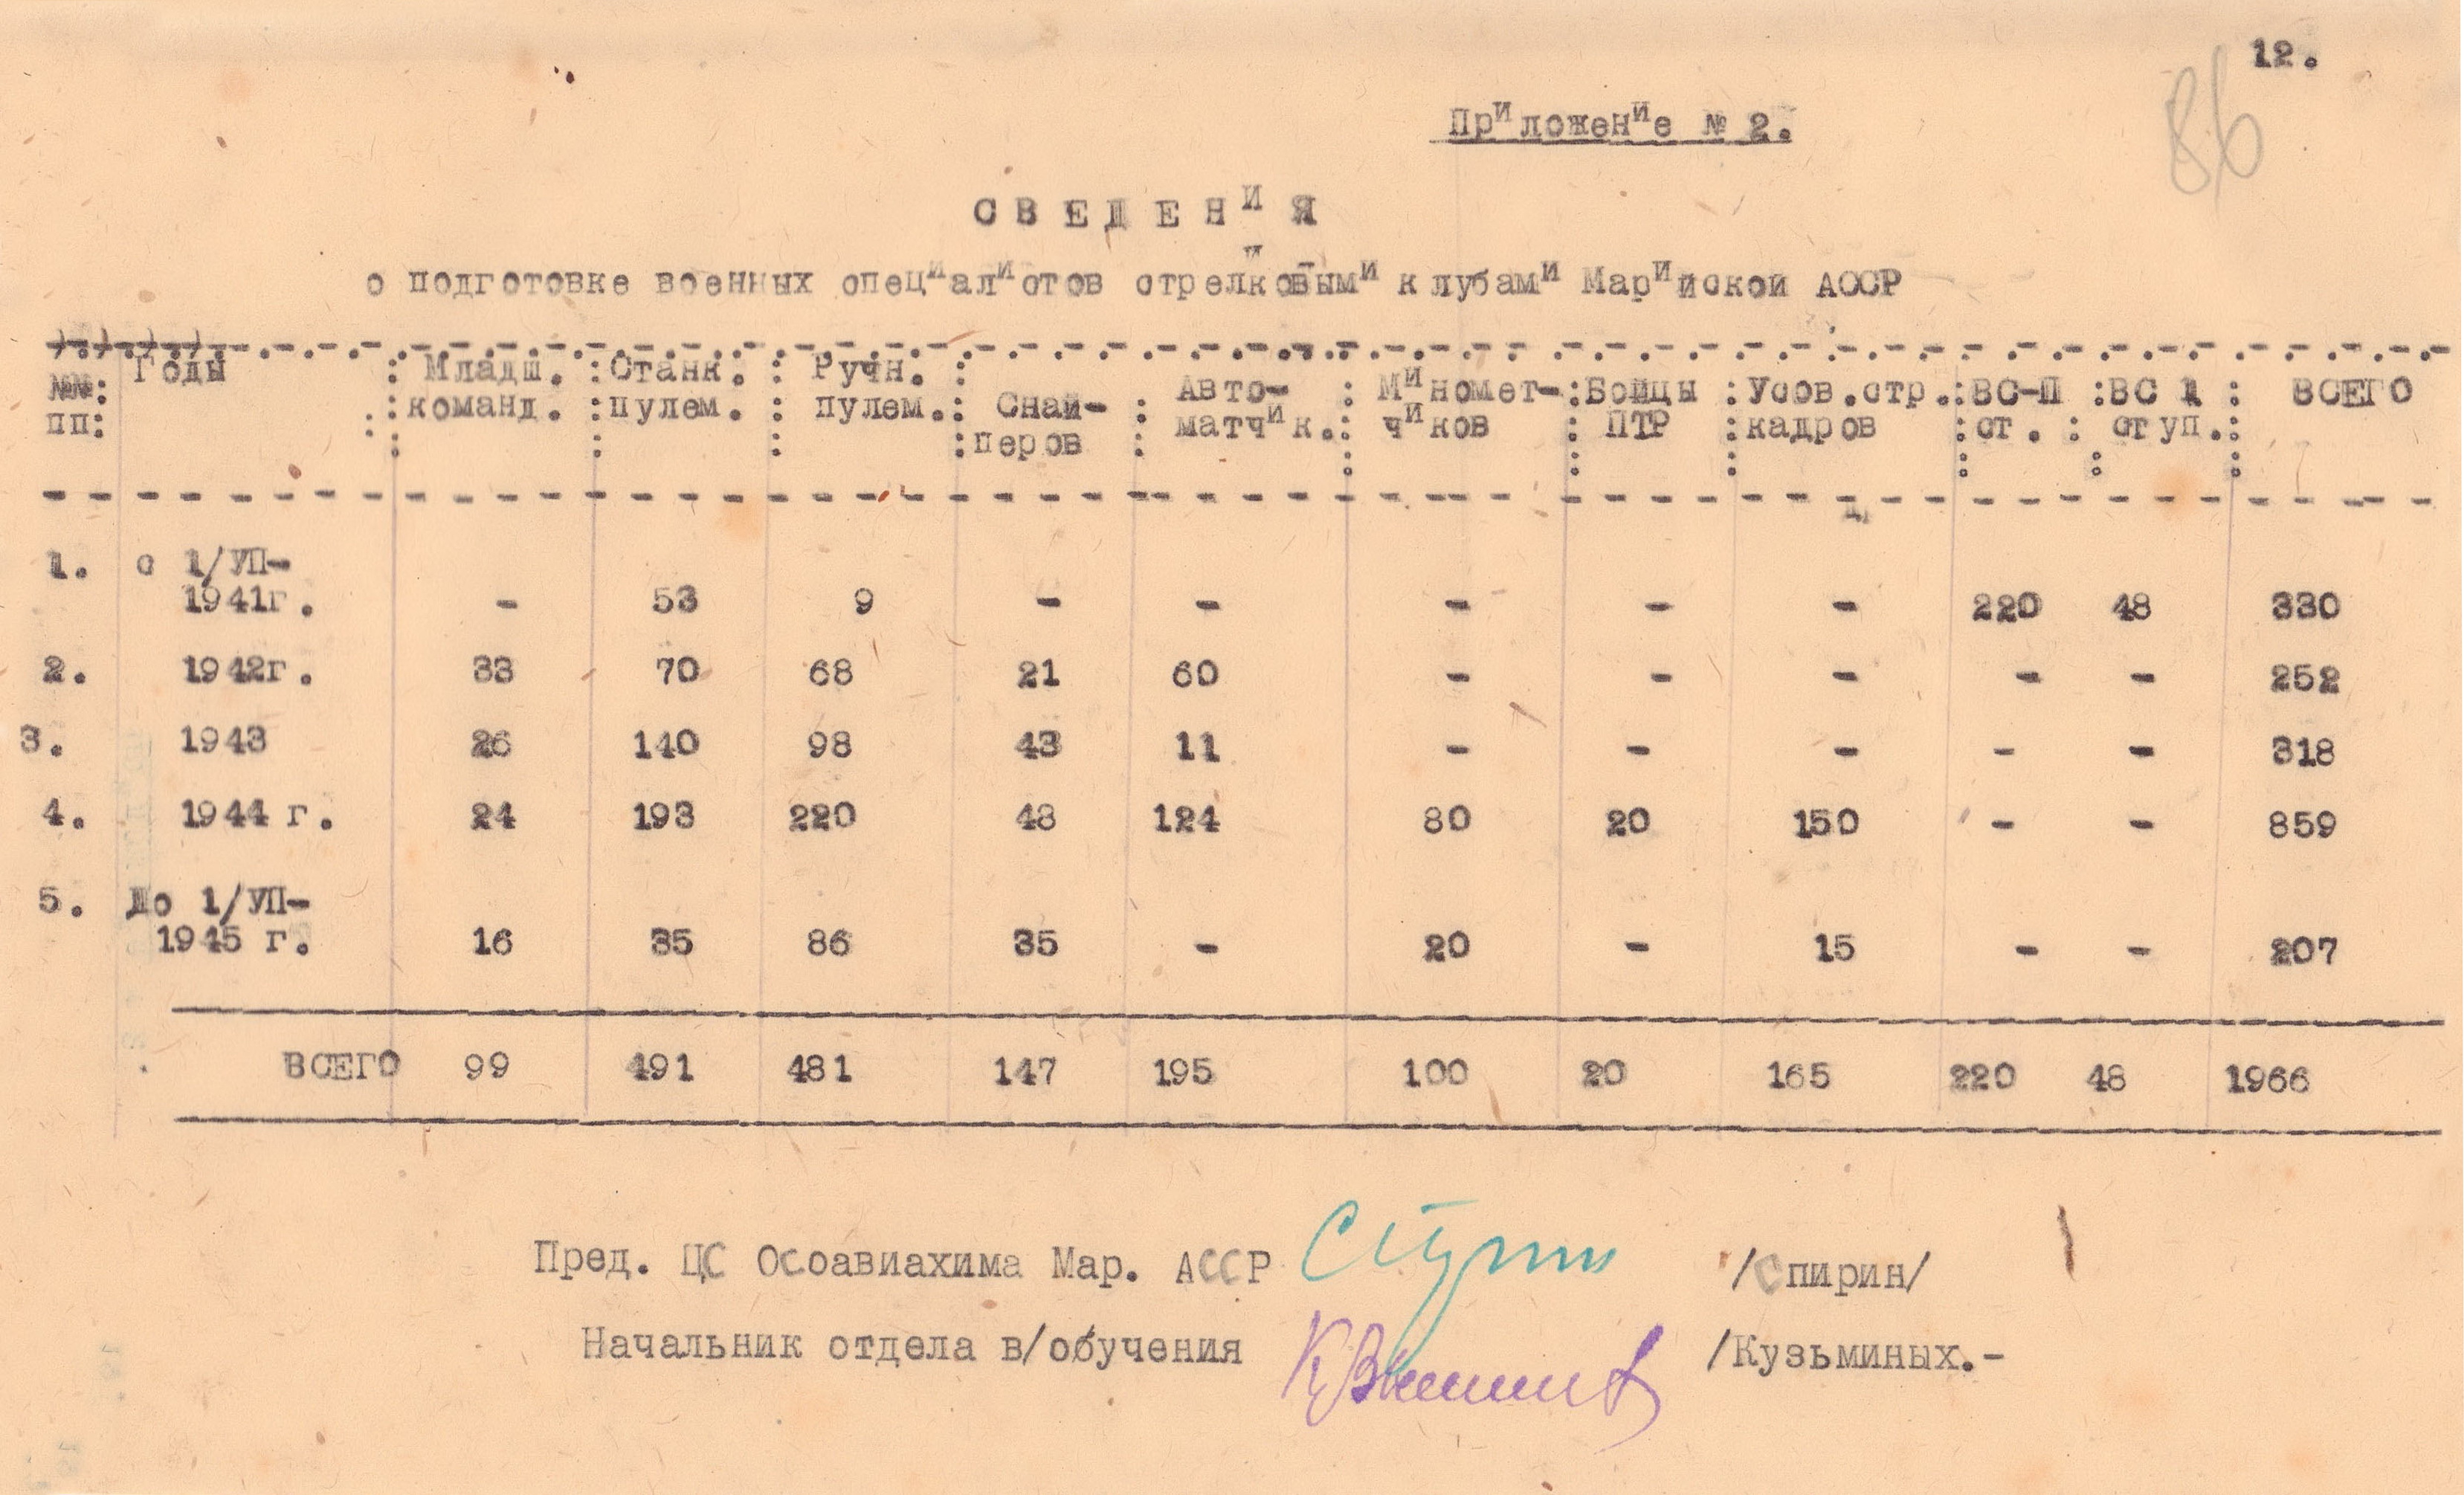 12.
86
Приложение № 2.
СВЕДЕНИЯ
о подготовке военных специалистов стрелковыми клубами Марийской АССР
№№ пп: Годы : Младш. команд. : Станк. пулем. : Ручн. пулем. : Снай-перов : Авто-матчик. : Миномет-чиков : Бойцы ПТР : Усов.стр. кадров : ВС-П ст. : ВС 1 ступ. : ВСЕГО
1. с 1/УП-
1941г. - 53 9 - - - - - 220 48 330
2. 1942г. 33 70 68 21 60 - - - - - 252
3. 1943 26 140 98 43 11 - - - - - 318
4. 1944 г. 24 193 220 48 124 80 20 150 - - 859
5. До 1/УП-
1945 г. 16 35 86 35 - 20 - 15 - - 207
ВСЕГО 99 491 481 147 195 100 20 165 220 48 1966
Пред. ЦС Осоавиахима Мар. АССР /Спирин/
Начальник отдела в/обучения /Кузьминых.-